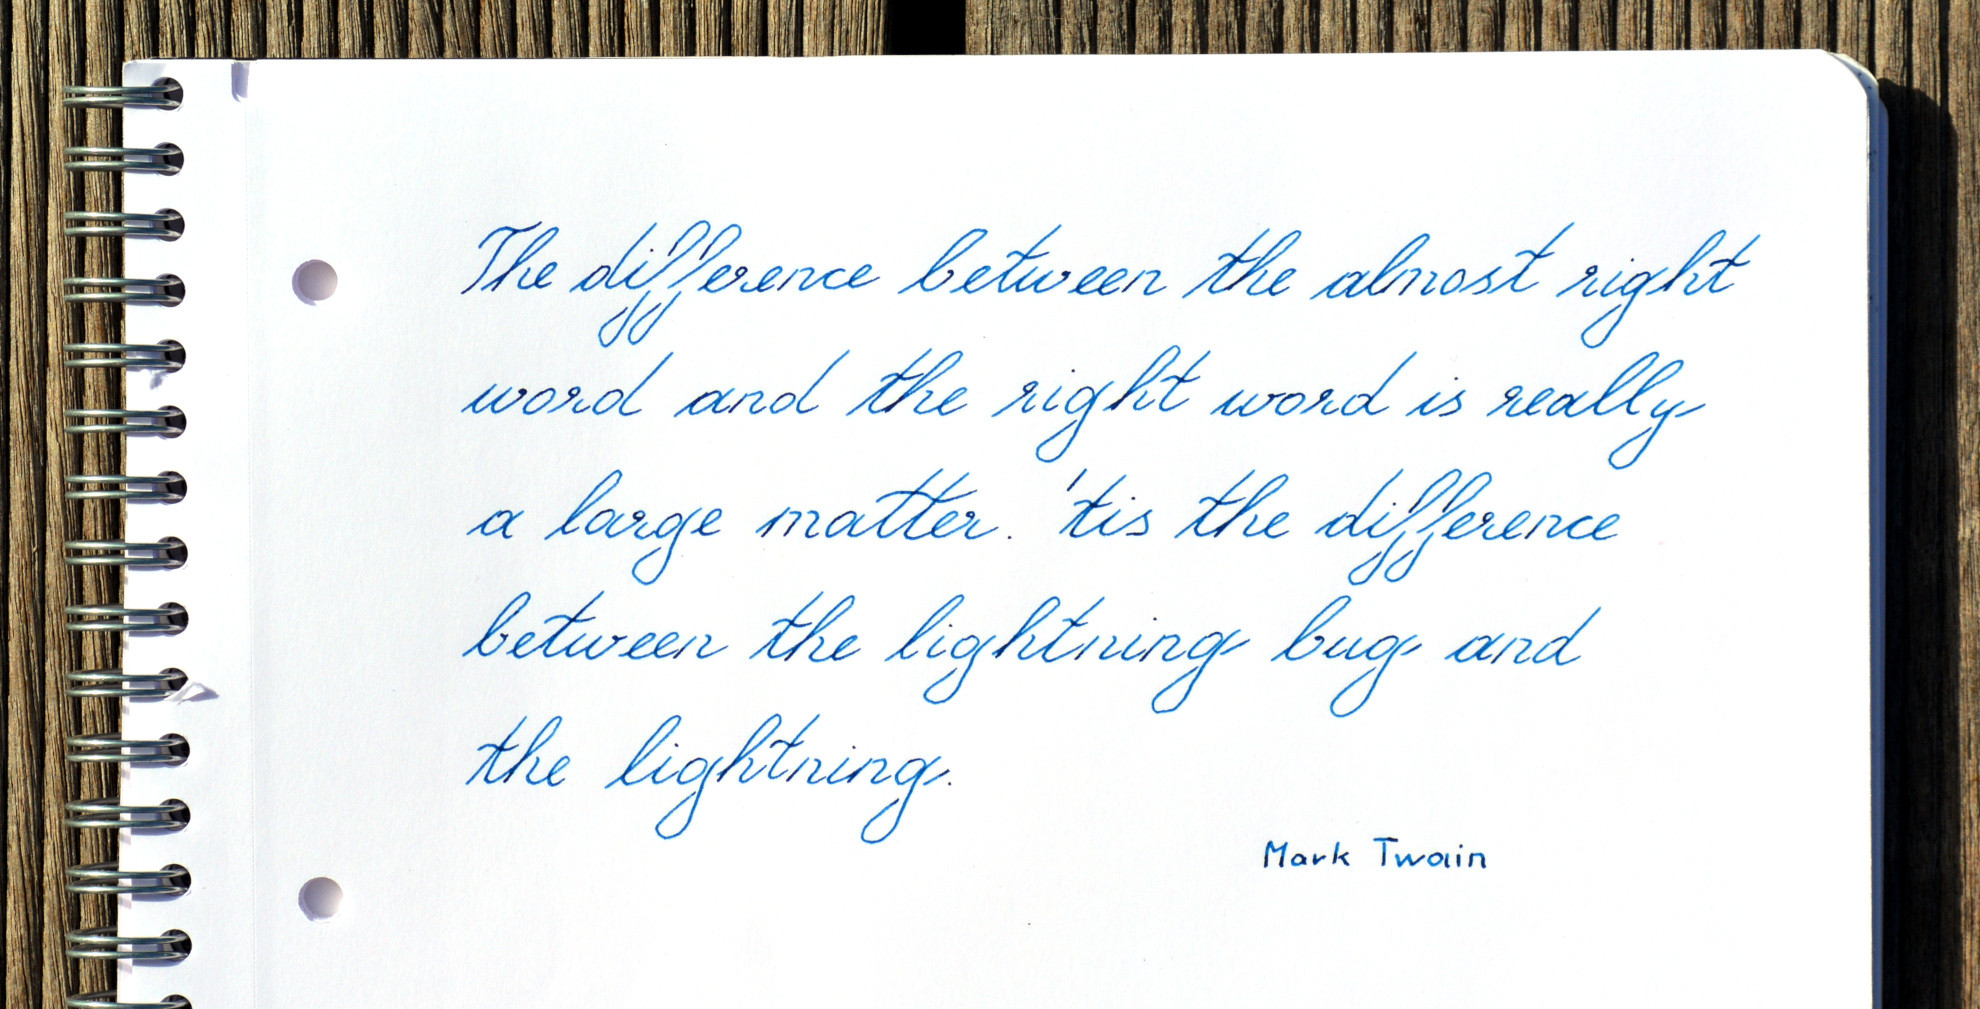 The difference between the almost right
word and the right word is really
a large matter. 'tis the difference
between the lightning bug and
the lightning.
Mark Twain